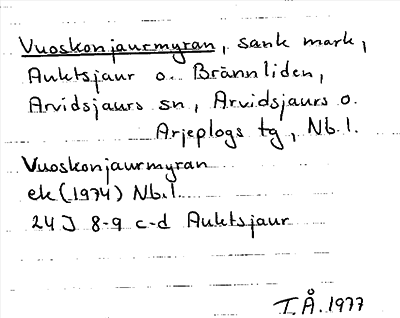 Vuoskonjaurmyran, sank mark,
Auktsjaur o. Brännliden,
Arvidsjaurs sn, Arvidsjaurs o.
Arjeplogs tg, Nb.l.
Vuoskonjaurmyran
ek (1974) Nb.l.
24J 8-9 c-d Auktsjaur
T.Å. 1977